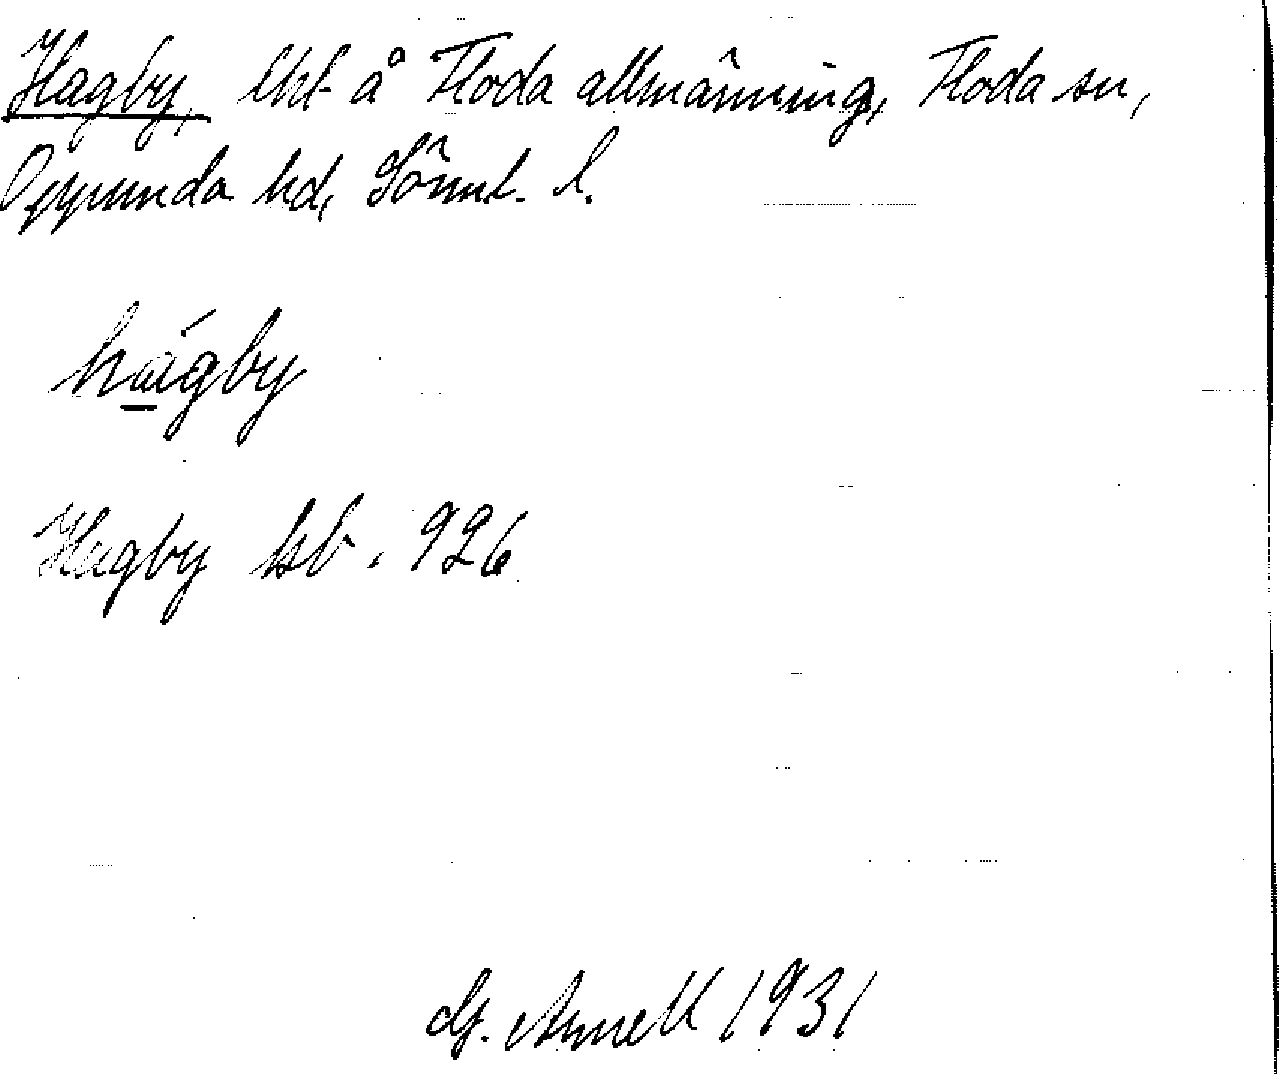 Hagby, lht å Floda allmänning, Floda sn,
Oppunda hd, Södml. l.
hágby
Hagby kb. 926
G. Arnell 1931